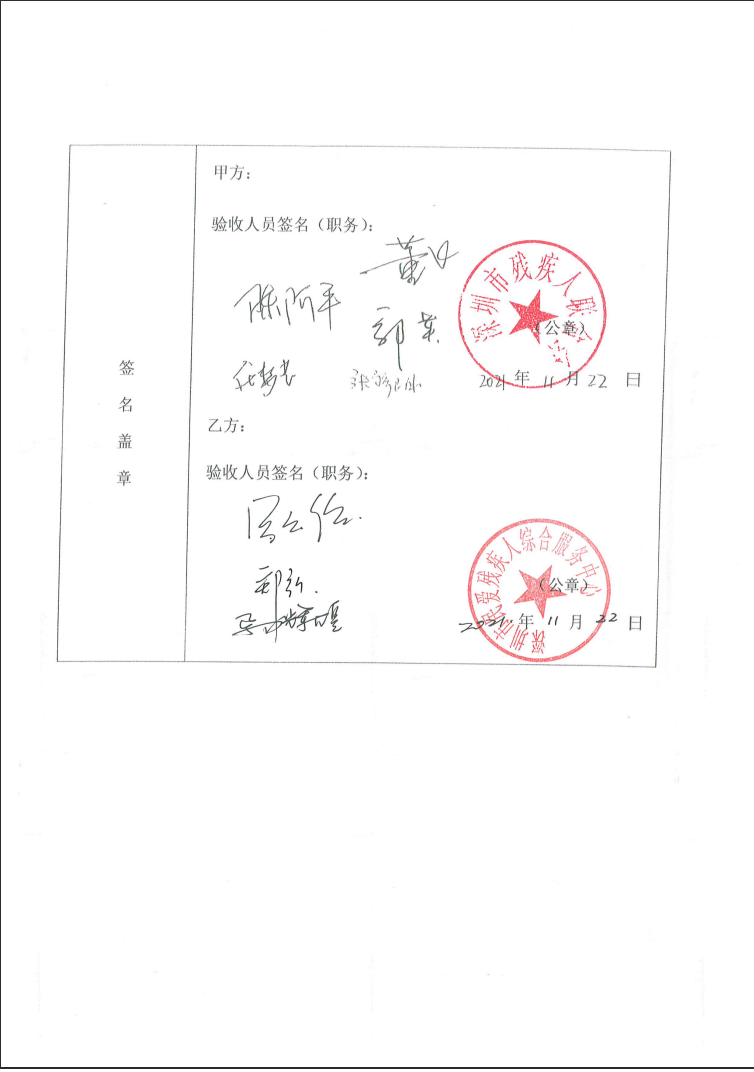 签名盖章
甲方：
验收人员签名（职务）：
郭英
深圳市残疾人联合会
（公章）
2021年11月22日
乙方：
验收人员签名（职务）：
郑弘
深圳市民爱残疾人综合服务中心
（公章）
2021年11月22日